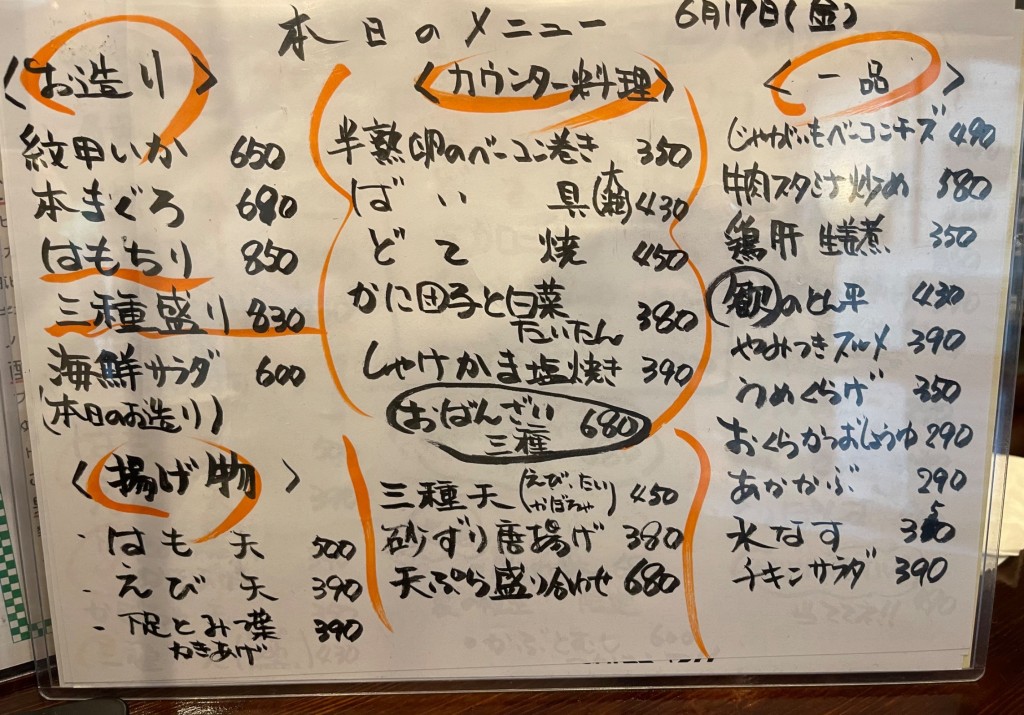 本日のメニュー
6月17日(金)
〈お造り〉
紋甲いか 650
本まぐろ 680
はもちり 850
三種盛り 830
海鮮サラダ 600
(本日のお造り)
〈揚げ物〉
・はも天 500
・えび天 390
・下足とみつ葉 390
かきあげ
〈カウンター料理〉
半熟卵のベーコン巻き 350
ばい貝(大) 430
どて焼 450
かに団子と白菜
たいたん 380
しゃけかま塩焼き 390
おばんざい
三種 680
三種天(えび、たい
かぼちゃ) 450
砂ずり唐揚げ 380
天ぷら盛り合わせ 680
〈一品〉
じゃがいもベーコンチーズ 490
牛肉スタミナ炒め 580
鶏肝生姜煮 350
のとん平 430
やみつきスルメ 390
うめくらげ 350
おくらかつおしょうゆ 290
あかかぶ 290
水なす
チキンサラダ 390